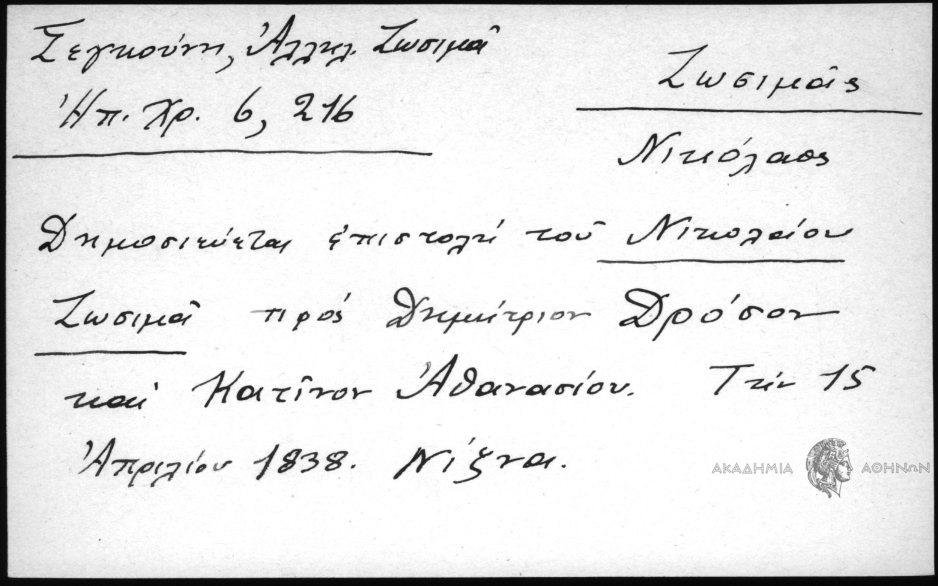 Σεγκούνη, Ἀλληλ. Ζωσιμᾶ
Ἠπ. Χρ. 6, 216
Ζωσιμᾶς
Νικόλαος
Δημοσιεύεται ἐπιστολή τοῦ Νικολάου
Ζωσιμᾶ πρός Δημήτριον Δρόσον
καί Κατῖνον Ἀθανασίου. Τήν 15
Ἀπριλίου 1838. Νίζνα.
ΑΚΑΔΗΜΙΑ ΑΘΗΝΩΝ